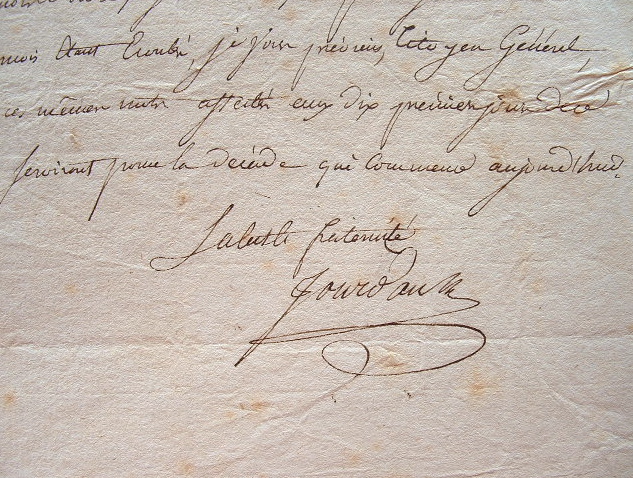 mois étant Ecoulé, je vous préviens, Citoyen Général,
ces mêmes mots affectés aux dix premier jours
serviront pour la décade qui commence aujourd'hui.
Salut & fraternité
Jourdan